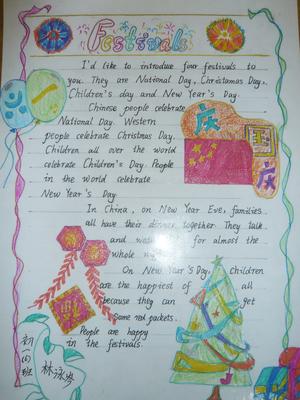 Festivals
I'd like to introduce four festivals to
you. They are National Day, Christamas Day,
Children's day and New Year's Day.
Chinese people celebrate
National Day. Western
people celebrate Christmas Day.
Children all over the world
celebrate Children's Day. People
in the world celebrate
New Year's Day.
六一
国
庆
庆
In China, on New Year Eve, families
all have their dinner together. They talk
and for almost the
whole
On New Year's Day, children
are the happiest of all
because they can get
some red packets.
People are happy
in the festivals.
福